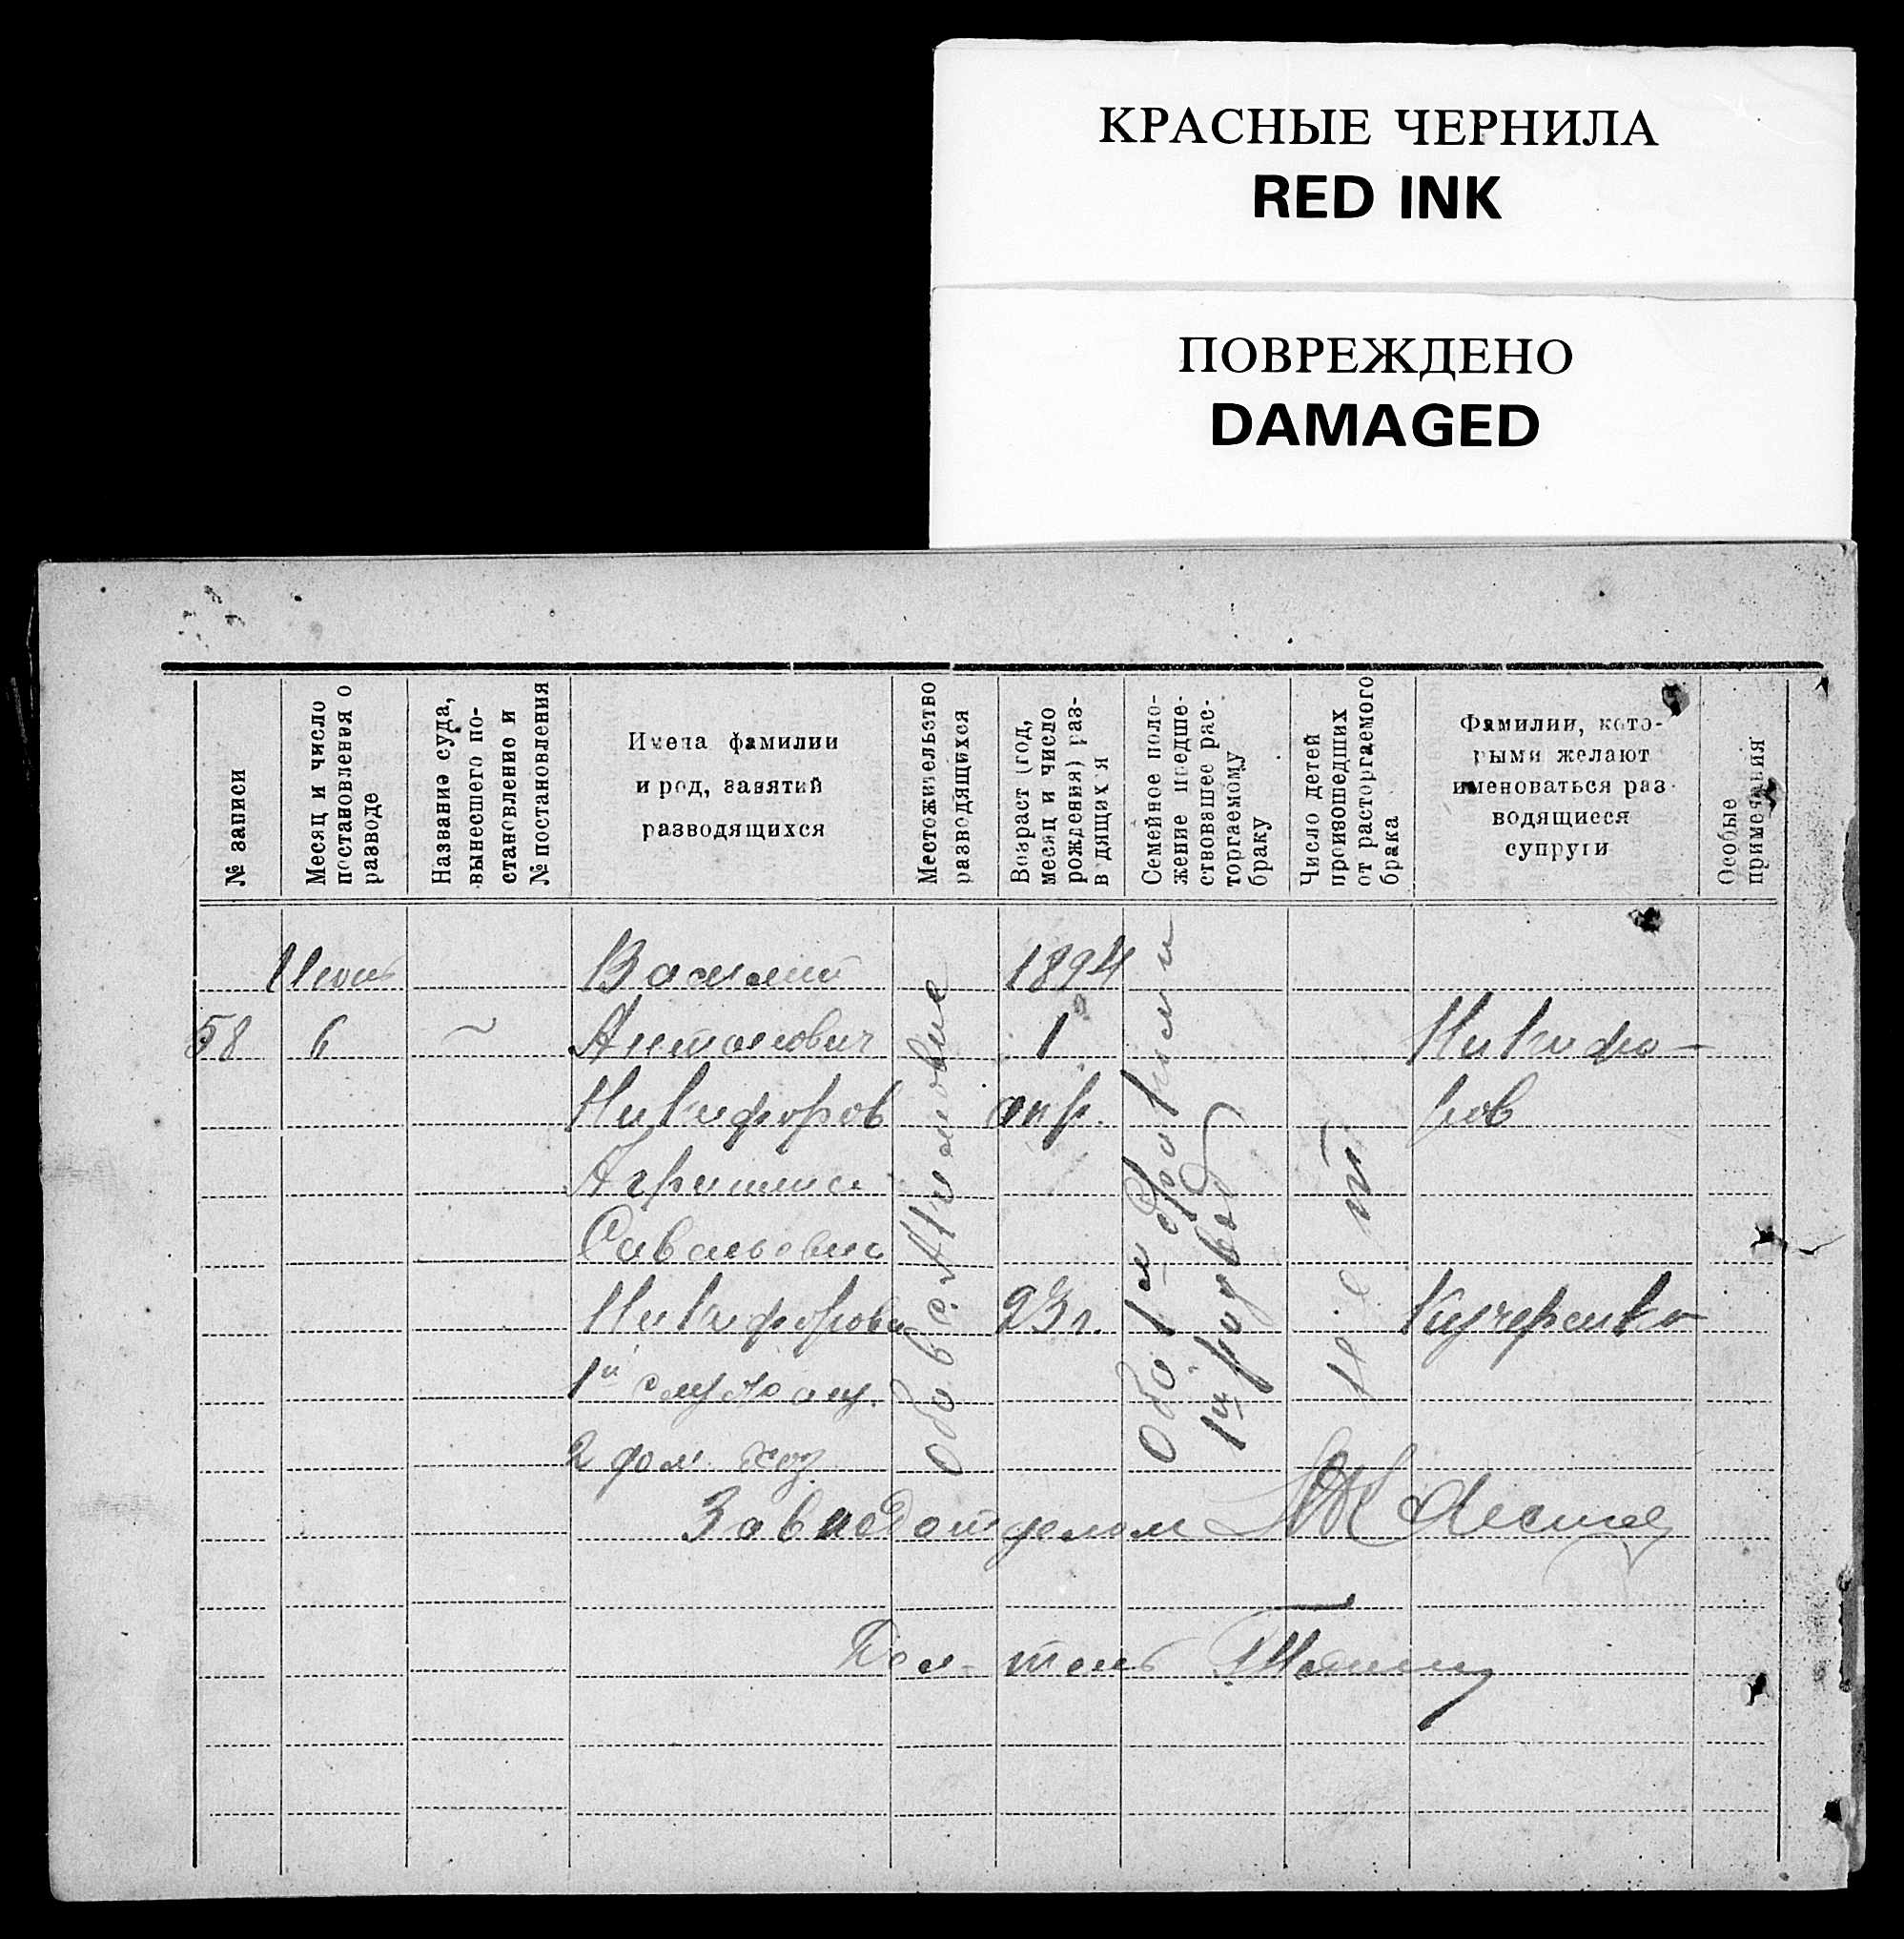 КРАСНЫЕ ЧЕРНИЛА
RED INK
ПОВРЕЖДЕНО
DAMAGED
№ записи
Месяц и число
постановления о
разводе
Название суда,
вынесшего по-
становление и
№ постановления
Имена фамилии
и род, занятий
разводящихся
Местожительство
разводящихся
Возраст (год,
месяц и число
рождения) раз-
в дящихся
Семейное поло-
жение предше-
ствовавшее рас-
торгаемому
браку
Число детей
происшедших
от расторгаемого
брака
Фамилии, кото-
рыми желают
именоваться раз-
водящиеся
супруги
Особые
примечания
58
6
Василий
Антонович
Никифоров
Савельевна
Никифорова
2 дом. хоз.
Оба в с.
1894
1
апр.
23 г.
Оба 1м браком и
1й развод
нет
Никифо-
ров
Кучеренко
Завподотделом